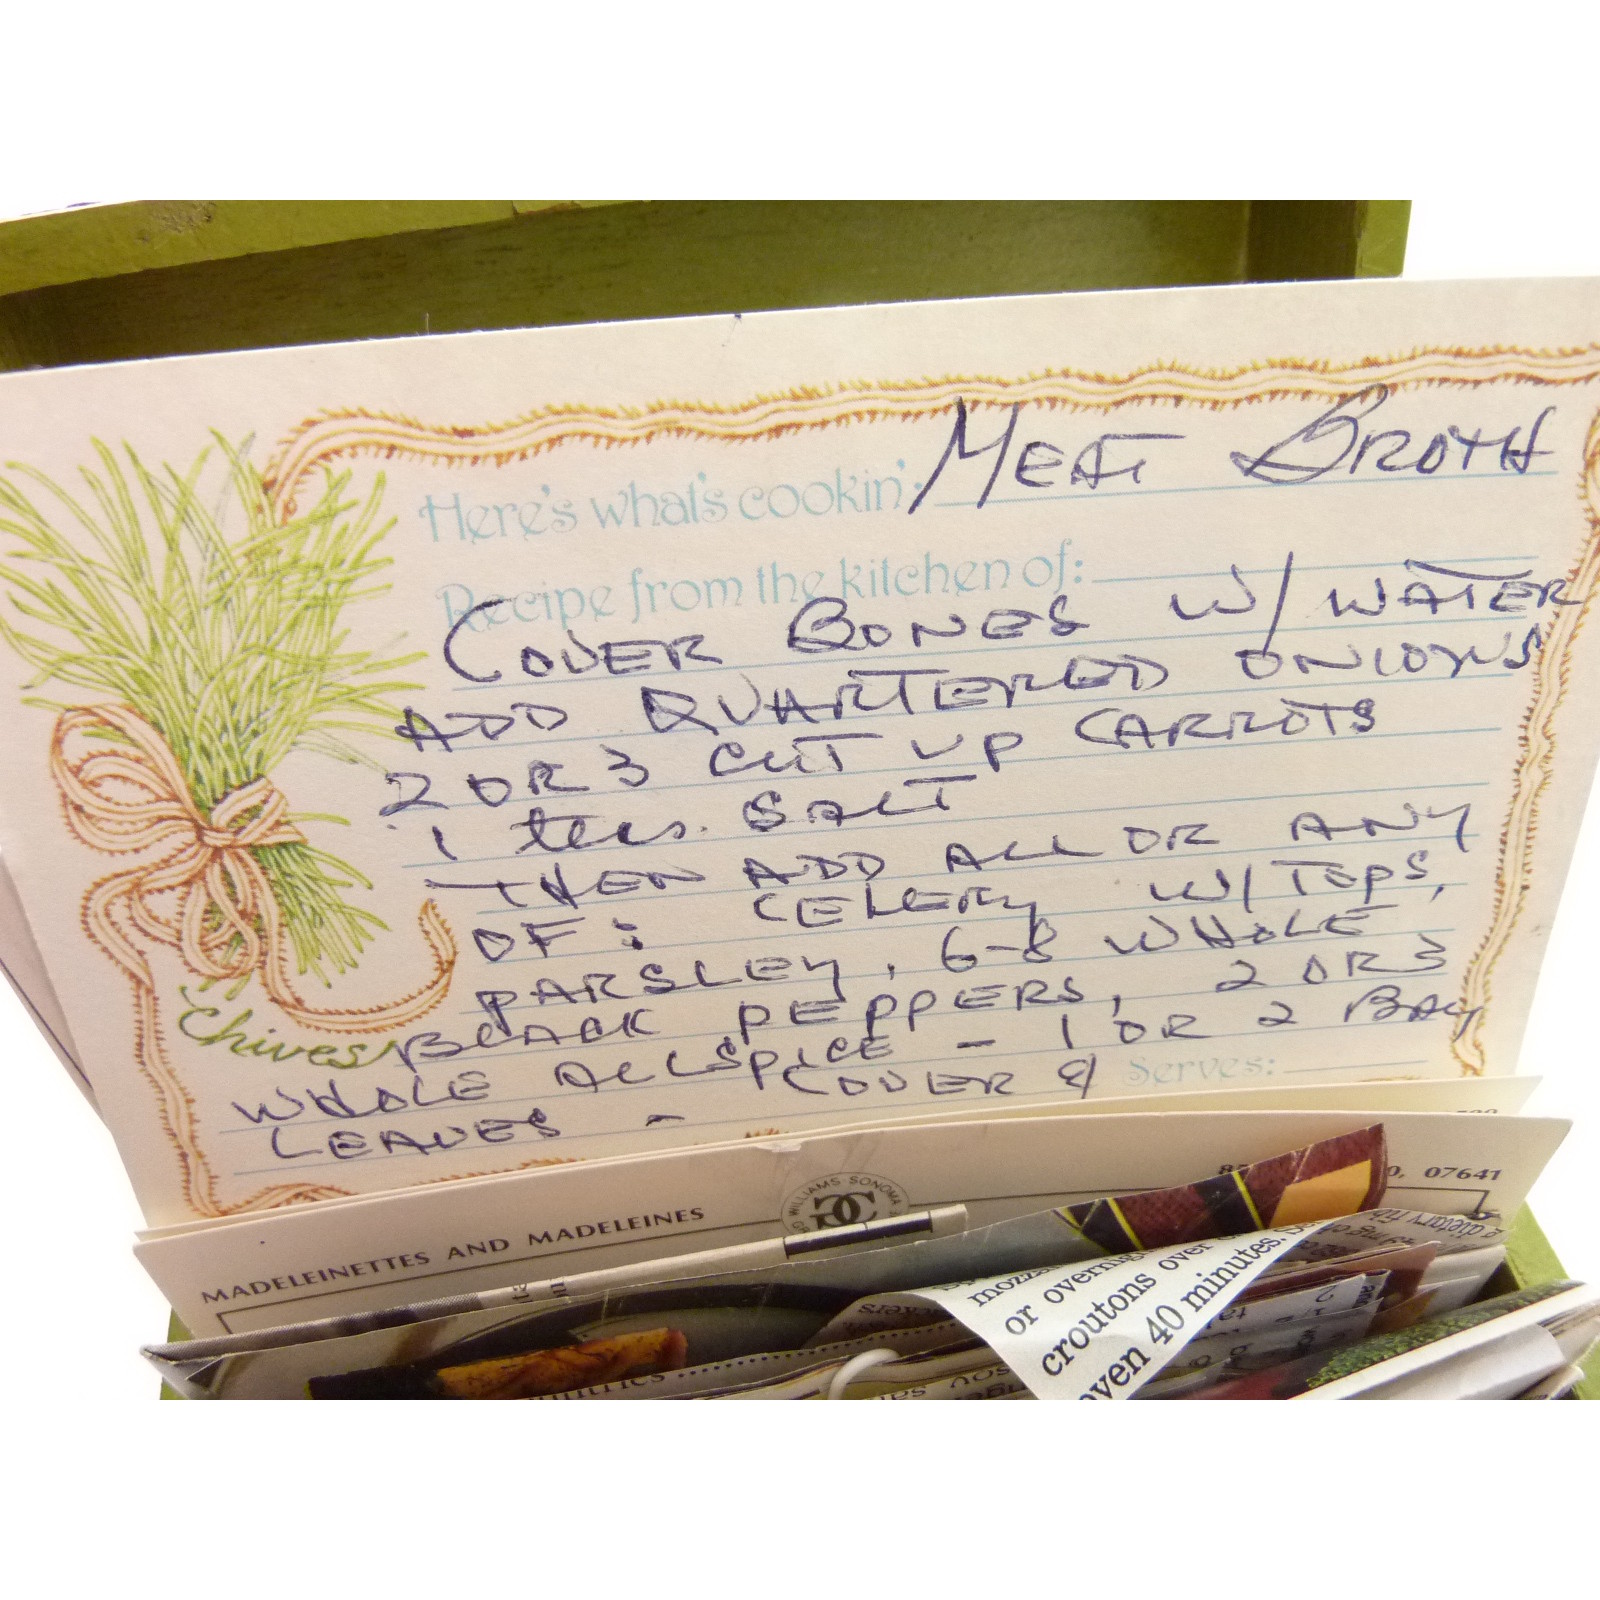 Here's what's cookin': MEAT BROTH
Recipe from the kitchen of:
COVER BONES W/ WATER
ADD QUARTERED ONIONS
2 OR 3 CUT UP CARROTS
1 teas. SALT
THEN ADD ALL OR ANY
OF: CELERY W/ TOPS,
PARSLEY, 6-8 WHOLE
BLACK PEPPERS, 2 OR 3
WHOLE ALLSPICE - 1 OR 2 BAY
LEAVES - COVER &
Serves:
Chives
MADELEINETTES AND MADELEINES
WILLIAMS SONOMA
07641
or
croutons over
oven 40 minutes.